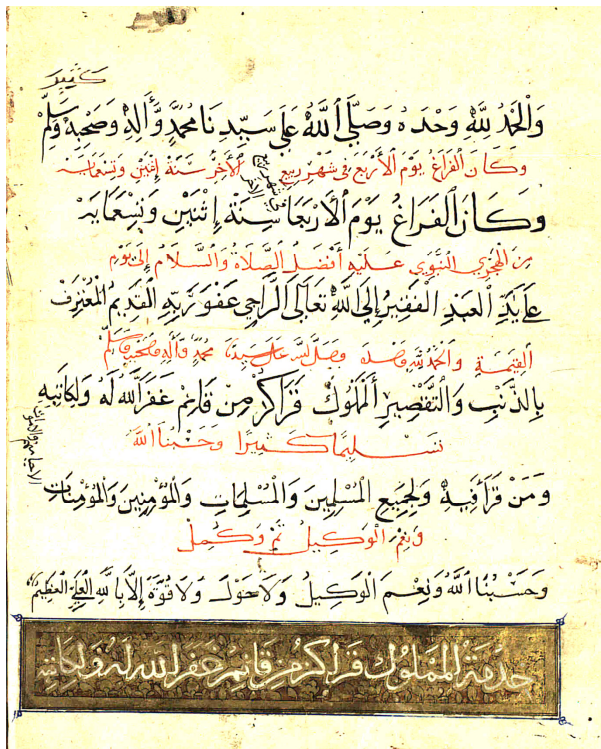 كثيرا
والحمد لله وحده وصلى الله على سيدنا محمد وآله وصحبه وسلم
وكان الفراغ يوم الأربع في شهر ربيع الآخر سنة إثنين وتسعماية
وكان الفراغ يوم الأربعا سنة إثنين وتسعماية
من الهجري النبوي عليه أفضل الصلاة والسلام إلى يوم
على يد العبد الفقير إلى الله تعالى الراجي عفو ربه القديم المعترف
القيمة والحمد لله وحده وصلى الله على سيدنا محمد وآله وصحبه وسلم
بالذنب والتقصير المملوك قراكز من قانم غفر الله له ولكاتبه
تسليما كثيرا وحسبنا الله
الاحيا منهم والاموات
ومن قرأ فيه ولجميع المسلمين والمسلمات والمؤمنين والمؤمنات
ونعم الوكيل تم وكمل
وحسبنا الله ونعم الوكيل ولا حول ولا قوة إلا بالله العلي العظيم
خدمة المملوك قراكز من قانم غفر الله له ولكاتبه